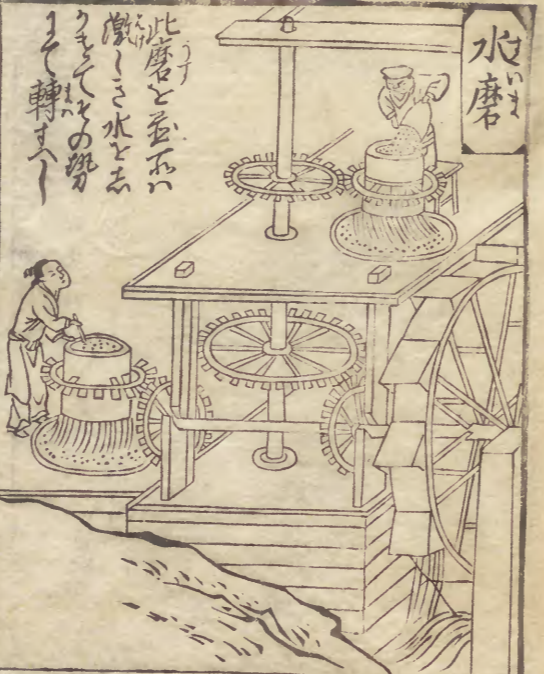 水磨
すいま
此磨を置所ハ
激しき水を志
かけてその勢
にて轉すへし